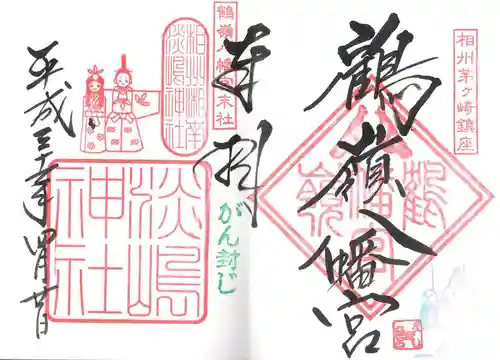 相州茅ヶ崎鎮座
鶴嶺八幡宮
鶴嶺八幡宮
鶴嶺八幡宮末社
奉拝
がん封じ
相州湘南
淡嶋神社
淡嶋神社
平成三十年四月廿日